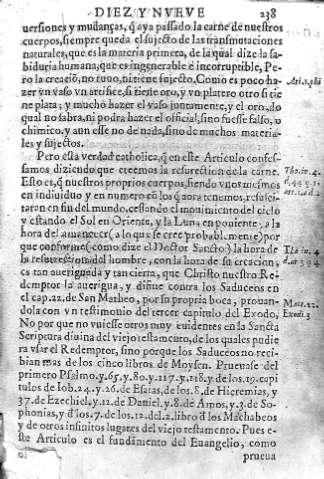 DIEZ Y NVEVE 238
uersiones y mudanças, q̃ aya passado la carne de nuestros
cuerpos, siempre queda el sujecto de las transmutaciones
naturales, que es la materia primera, de la qual dize la sa-
biduria humana, que es ingenerable e incorruptible, Pe-
ro la creaciõ, no tuuo, ni tiene sujecto. Como es poco ha-
zer vn vaso vn artifice, si tiene oro, y vn platero otro si tie
ne plata; y mucho hazer el vaso juntamente, y el oro, lo
qual no sabra, ni podra hazer el official, sino fuesse falso, o
chimico, y aun esse no de nada, sino de muchos materia-
les y sujectos.
Pero esta verdad catholica, q̃ en este Articulo confes-
samos diziendo que creemos la resurrectiõ de la carne.
Esto es, q̃ nuestros proprios cuerpos, siendo vnos mesmos
en indiuiduo y en numero cõ los q̃ aora tenemos, resusci-
taran en fin del mundo, cessando el mouimiento del cielo
y estando el Sol en Oriente, y la Luna en poniente, a la
hora del amanecer (a lo que se cree probablemente) por
que conforme (como dize el Doctor Sancto) la hora de
la resurrection del hombre, con la hora de su creacion,
es tan aueriguada y tan cierta, que Christo nuestro Re-
demptor la auerigua, y difine contra los Saduceos en
el cap. 22. de San Matheo, por su propria boca, prouan-
dola con vn testimonio del tercer capitulo del Exodo,
No por que no vuiesse otros muy euidentes en la Sancta
Scriptura diuina del viejo testamento, de los quales pudie
ra vsar el Redemptor, sino porque los Saduceos no reci-
bian mas de los cinco libros de Moysen. Prueuase del
primero Psalmo, y. 65. y 80. y 117. y 118. y de los 19. capi
tulos de Iob, 24. y 26. de Esaias, de los 8. de Hieremias, y
37. de Ezechiel, y 12. de Daniel, y. 8. de Amos, y 3. de So-
phonias, y d'los. 7. de los 12. del 2. libro d'los Machabeos
y de otros infinitos lugares del viejo testamento. Pues es-
te Articulo es el fundamento del Euangelio, como
prueua
Tho. in. 4.
Tho. in. 4
Matt. 22.
Exodi. 3